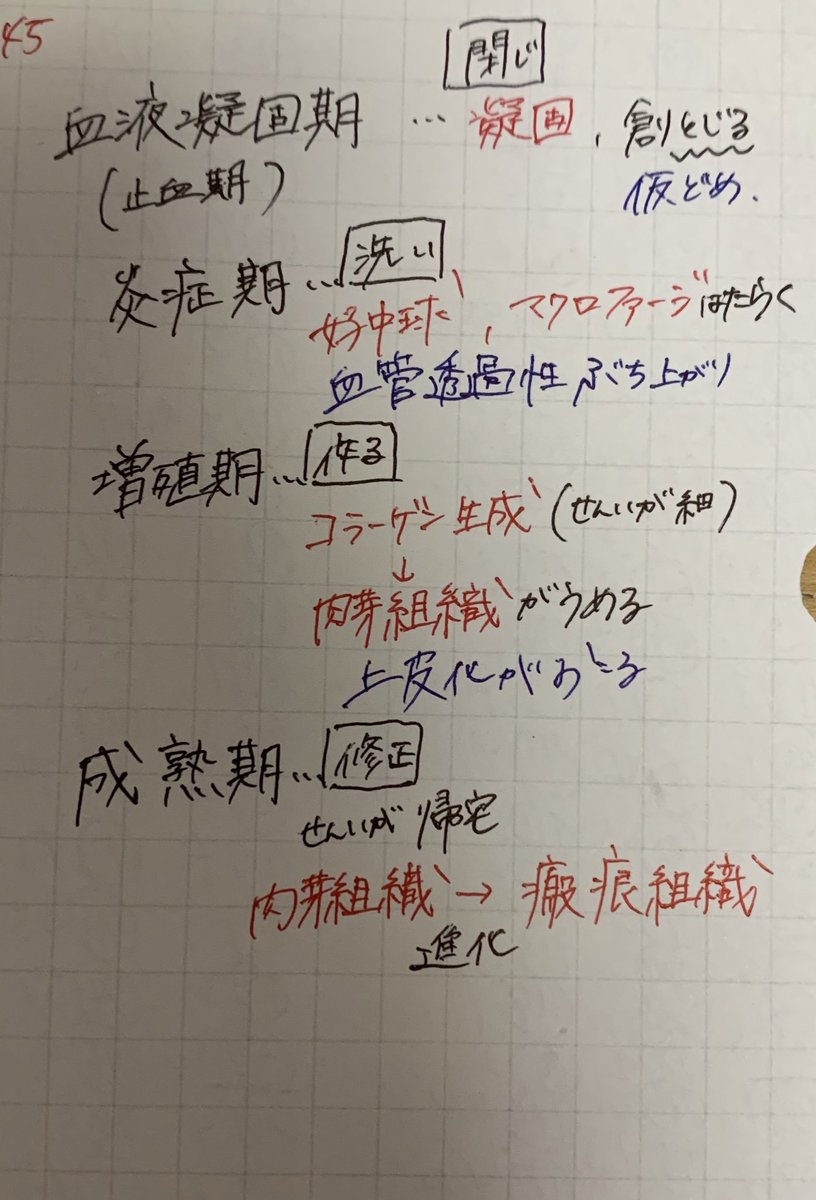 45
閉じ
血液凝固期 … 凝固, 創とじる
(止血期) 仮どめ.
炎症期…洗い
好中球, マクロファージはたらく
血管透過性ぶち上がり
増殖期…作る
コラーゲン生成(せんいが細)
↓
肉芽組織がうめる
上皮化がおこる
成熟期…修正
せんいが帰宅
肉芽組織→瘢痕組織
進化